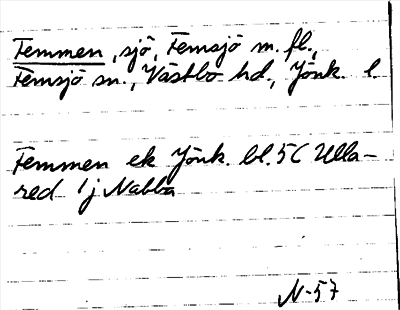 Femmen, sjö, Femsjö m. fl.,
Femsjö sn., Västbo hd., Jönk. l
Femmen ek Jönk. bl. 5C Ulla-
red 1j Nabba
N-57